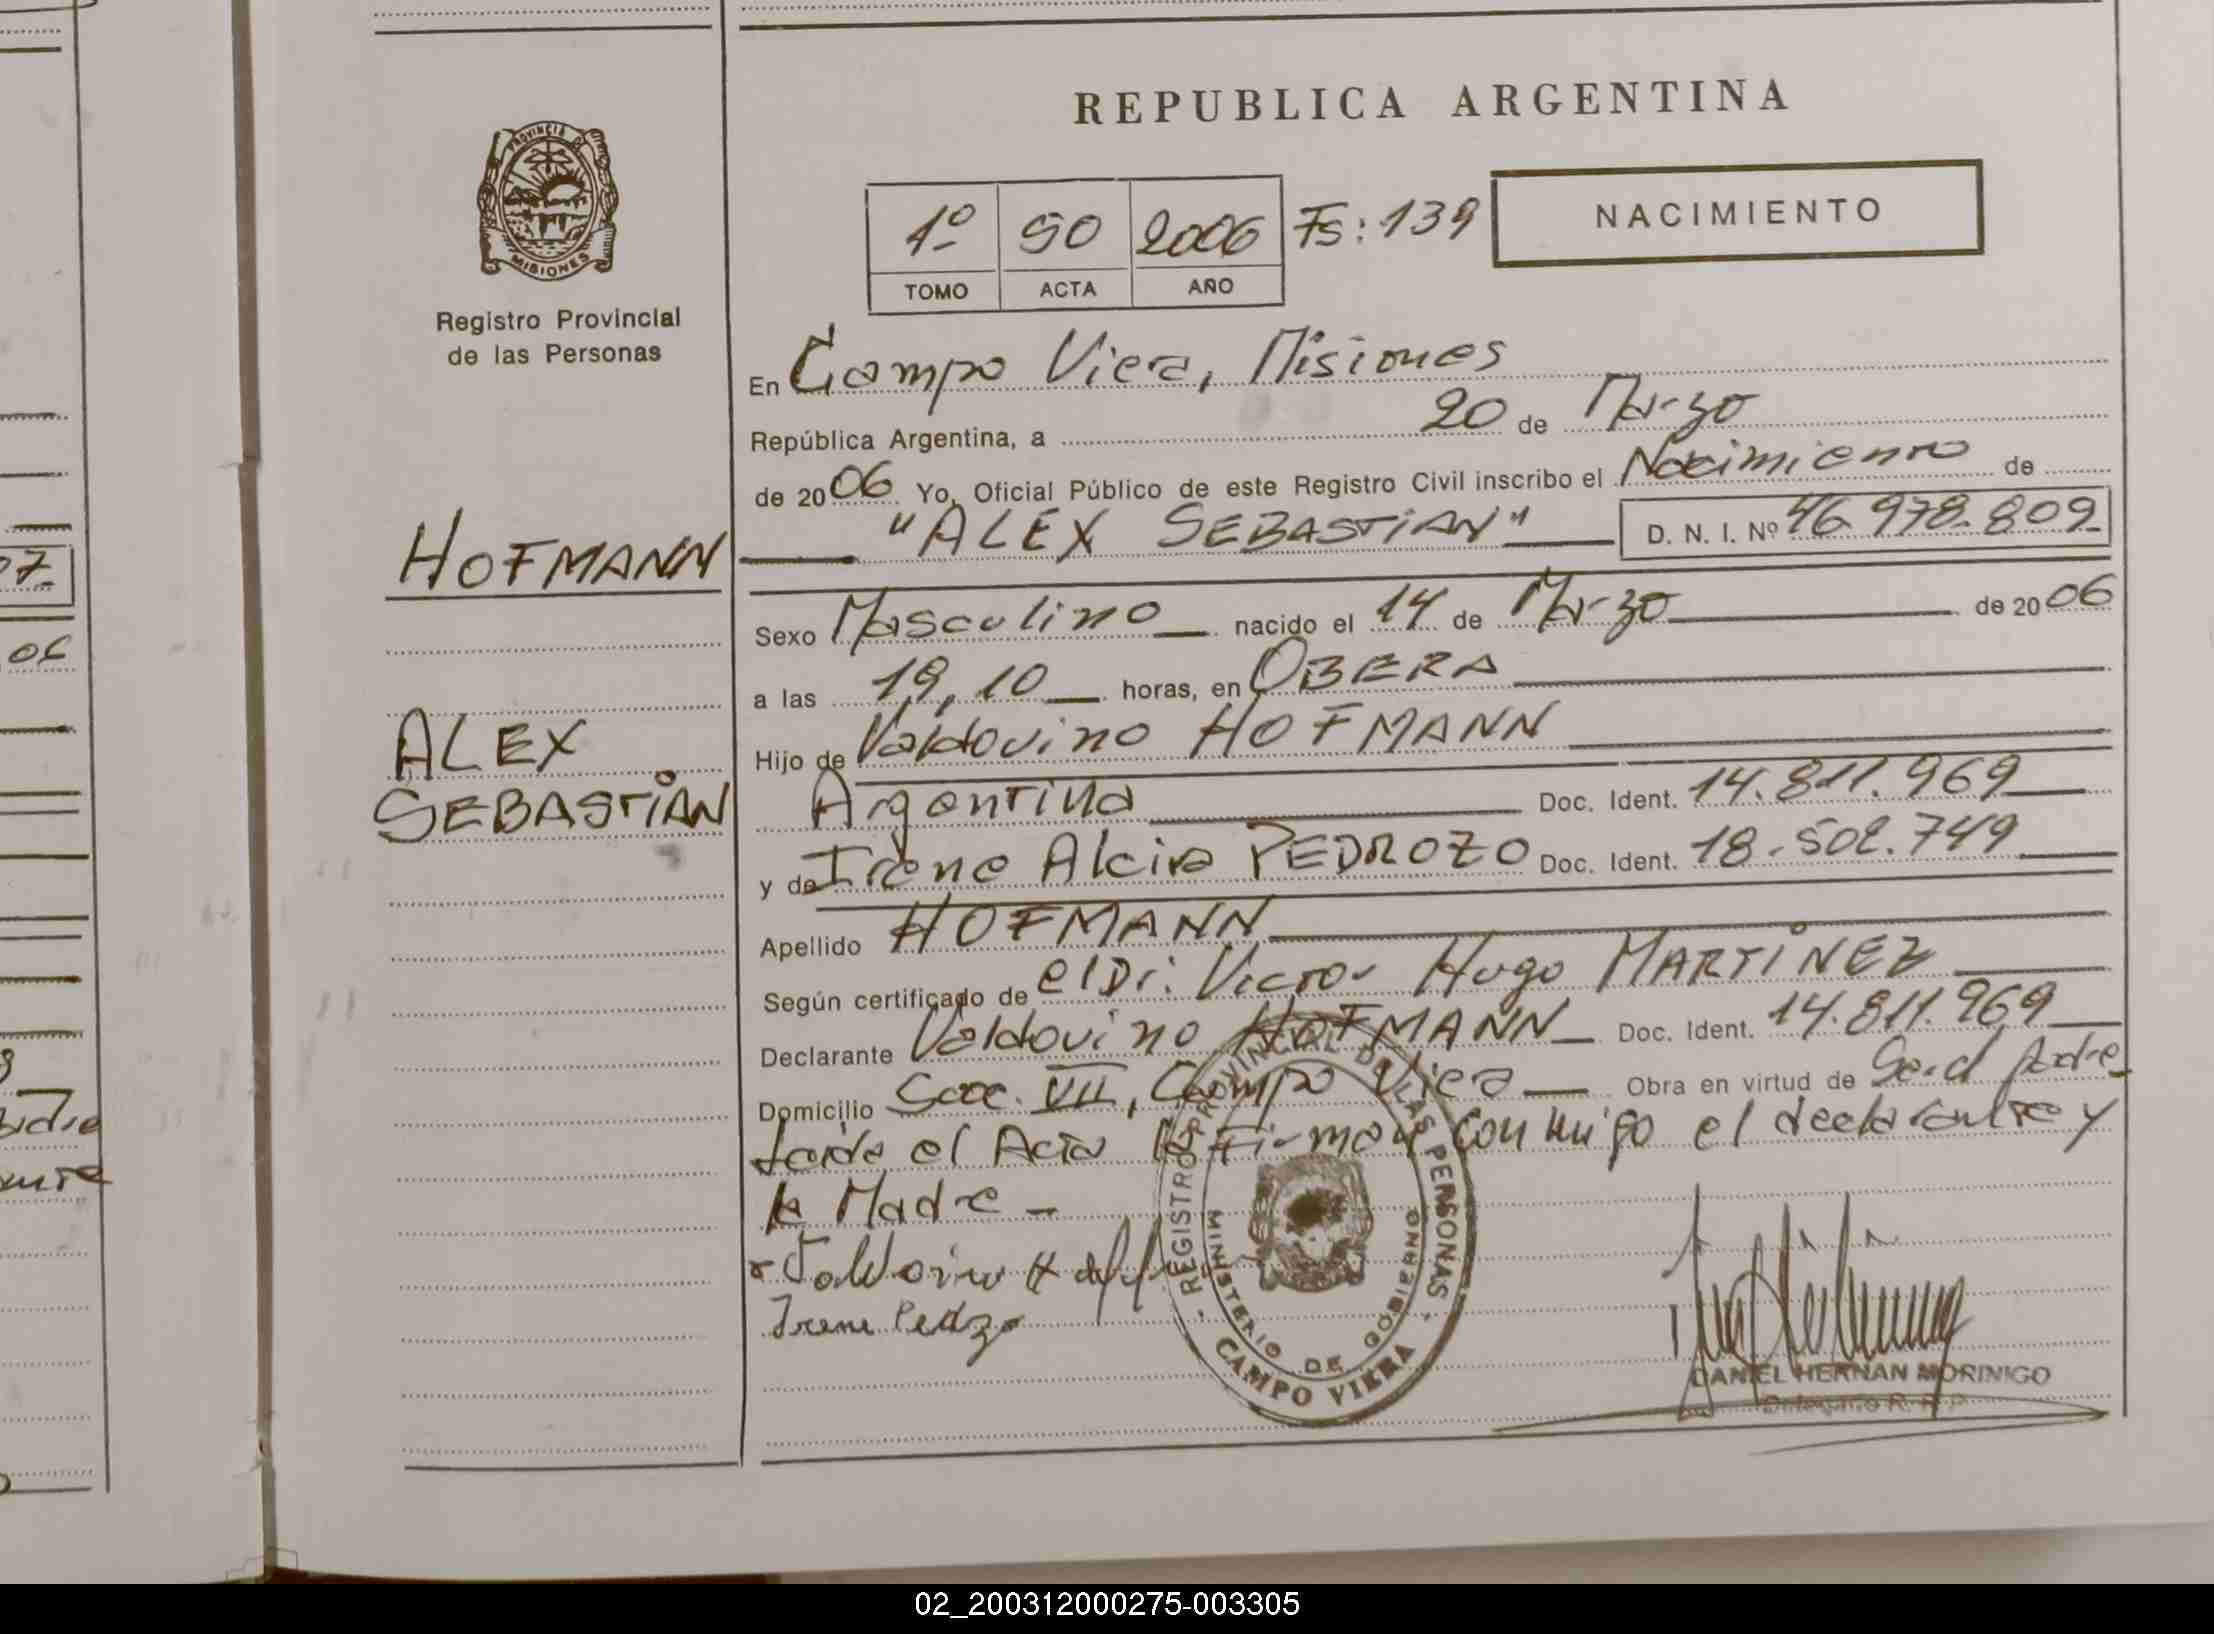 REPUBLICA ARGENTINA
PROVINCIA DE
MISIONES
Registro Provincial
de las Personas
1º 90 2006 Fs: 139
TOMO ACTA AÑO
NACIMIENTO
En Campo Viera, Misiones
República Argentina, a 20 de Marzo
de 2006 Yo, Oficial Público de este Registro Civil inscribo el Nacimiento de
"ALEX SEBASTIAN" D. N. I. Nº 46.978.809
HOFMANN
ALEX
SEBASTIAN
Sexo Masculino nacido el 14 de Marzo de 2006
a las 19,10 horas, en OBERA
Hijo de Valdovino HOFMANN
Argentina Doc. Ident. 14.811.969
y de Irene Alcira PEDROZO Doc. Ident. 18.502.749
Apellido HOFMANN
Según certificado de el Dr. Victor Hugo MARTINEZ
Declarante Valdovino HOFMANN Doc. Ident. 14.811.969
Domicilio Secc. VII, Campo Viera Obra en virtud de Ser el Padre
Leida el Acta la Firman conmigo el declarante y
la Madre -
Irene Pedzo
REGISTRO PROVINCIAL DE LAS PERSONAS
MINISTERIO DE GOBIERNO
CAMPO VIERA
DANIEL HERNAN MORINIGO
02_200312000275-003305